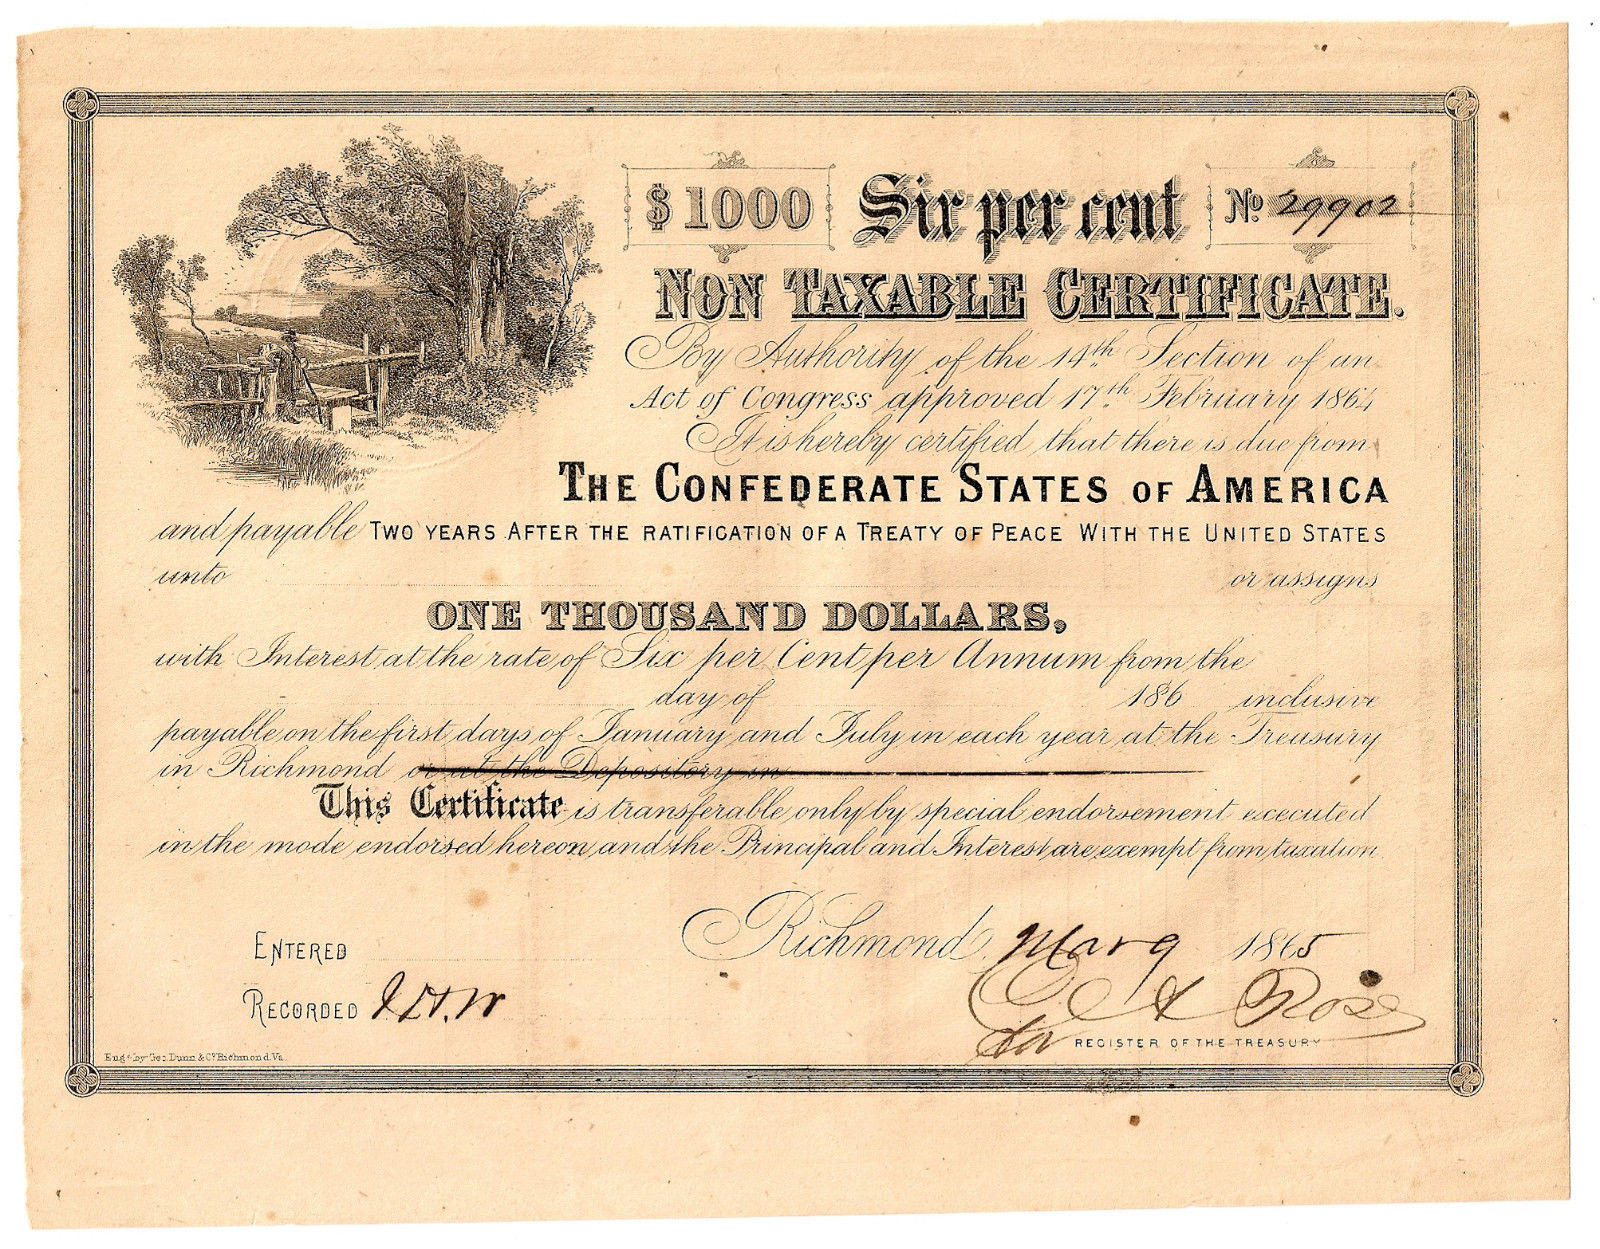 $1000 Six per cent No 29902
NON TAXABLE CERTIFICATE.
By Authority of the 14th Section of an
Act of Congress approved 17th February 1864
It is hereby certified that there is due from
THE CONFEDERATE STATES OF AMERICA
and payable TWO YEARS AFTER THE RATIFICATION OF A TREATY OF PEACE WITH THE UNITED STATES
unto or assigns
ONE THOUSAND DOLLARS,
with Interest at the rate of Six per Cent per Annum from the
day of 186 inclusive
payable on the first days of January and July in each year at the Treasury
in Richmond or at the Depository in
This Certificate is transferable only by special endorsement executed
in the mode endorsed hereon and the Principal and Interest are exempt from taxation.
Richmond, Mar 9 1865
ENTERED
RECORDED
Rose
for REGISTER OF THE TREASURY
Engd by Geo. Dunn & Co. Richmond. Va.